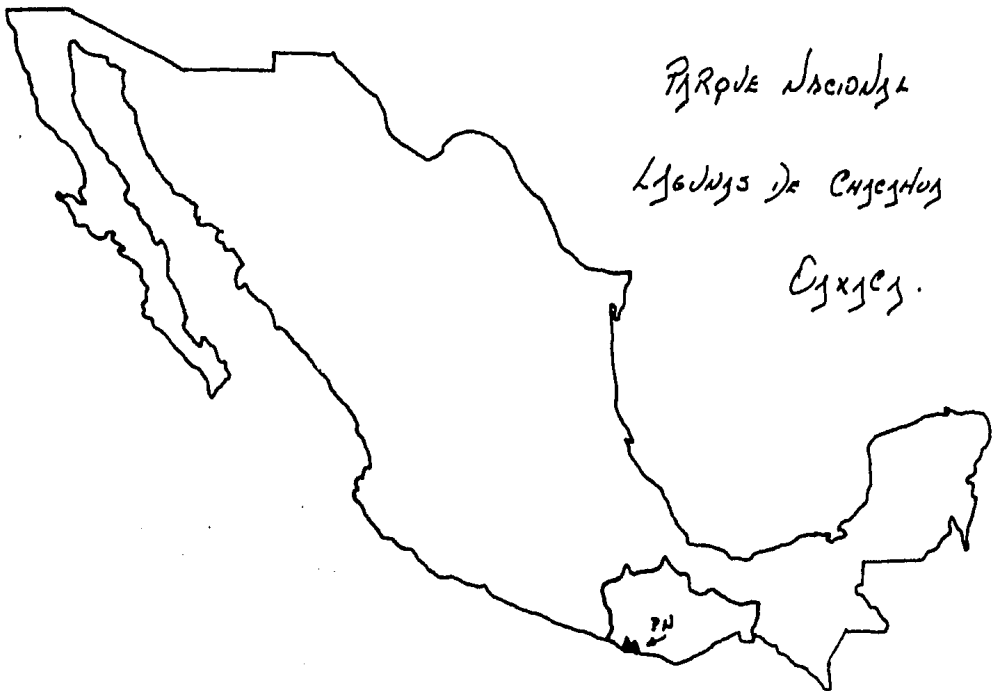 PARQUE NACIONAL
LAGUNAS DE CHACAHUA
OAXACA.
PN